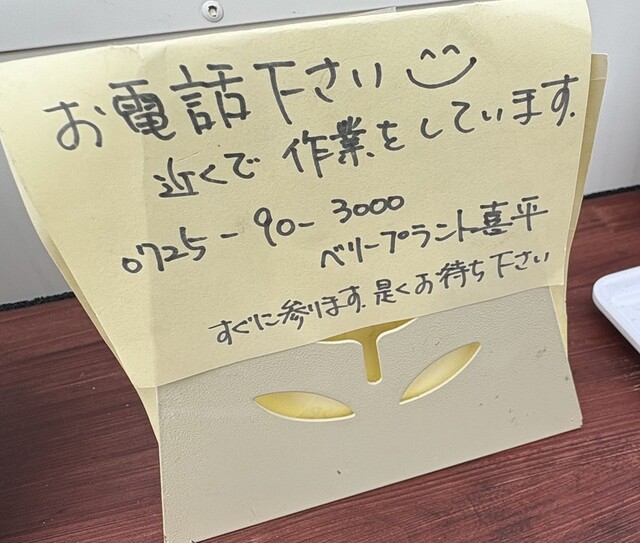 お電話下さい
近くで 作業をしています.
0725-90-3000
ベリープラント喜平
すぐに参ります.是くお待ち下さい